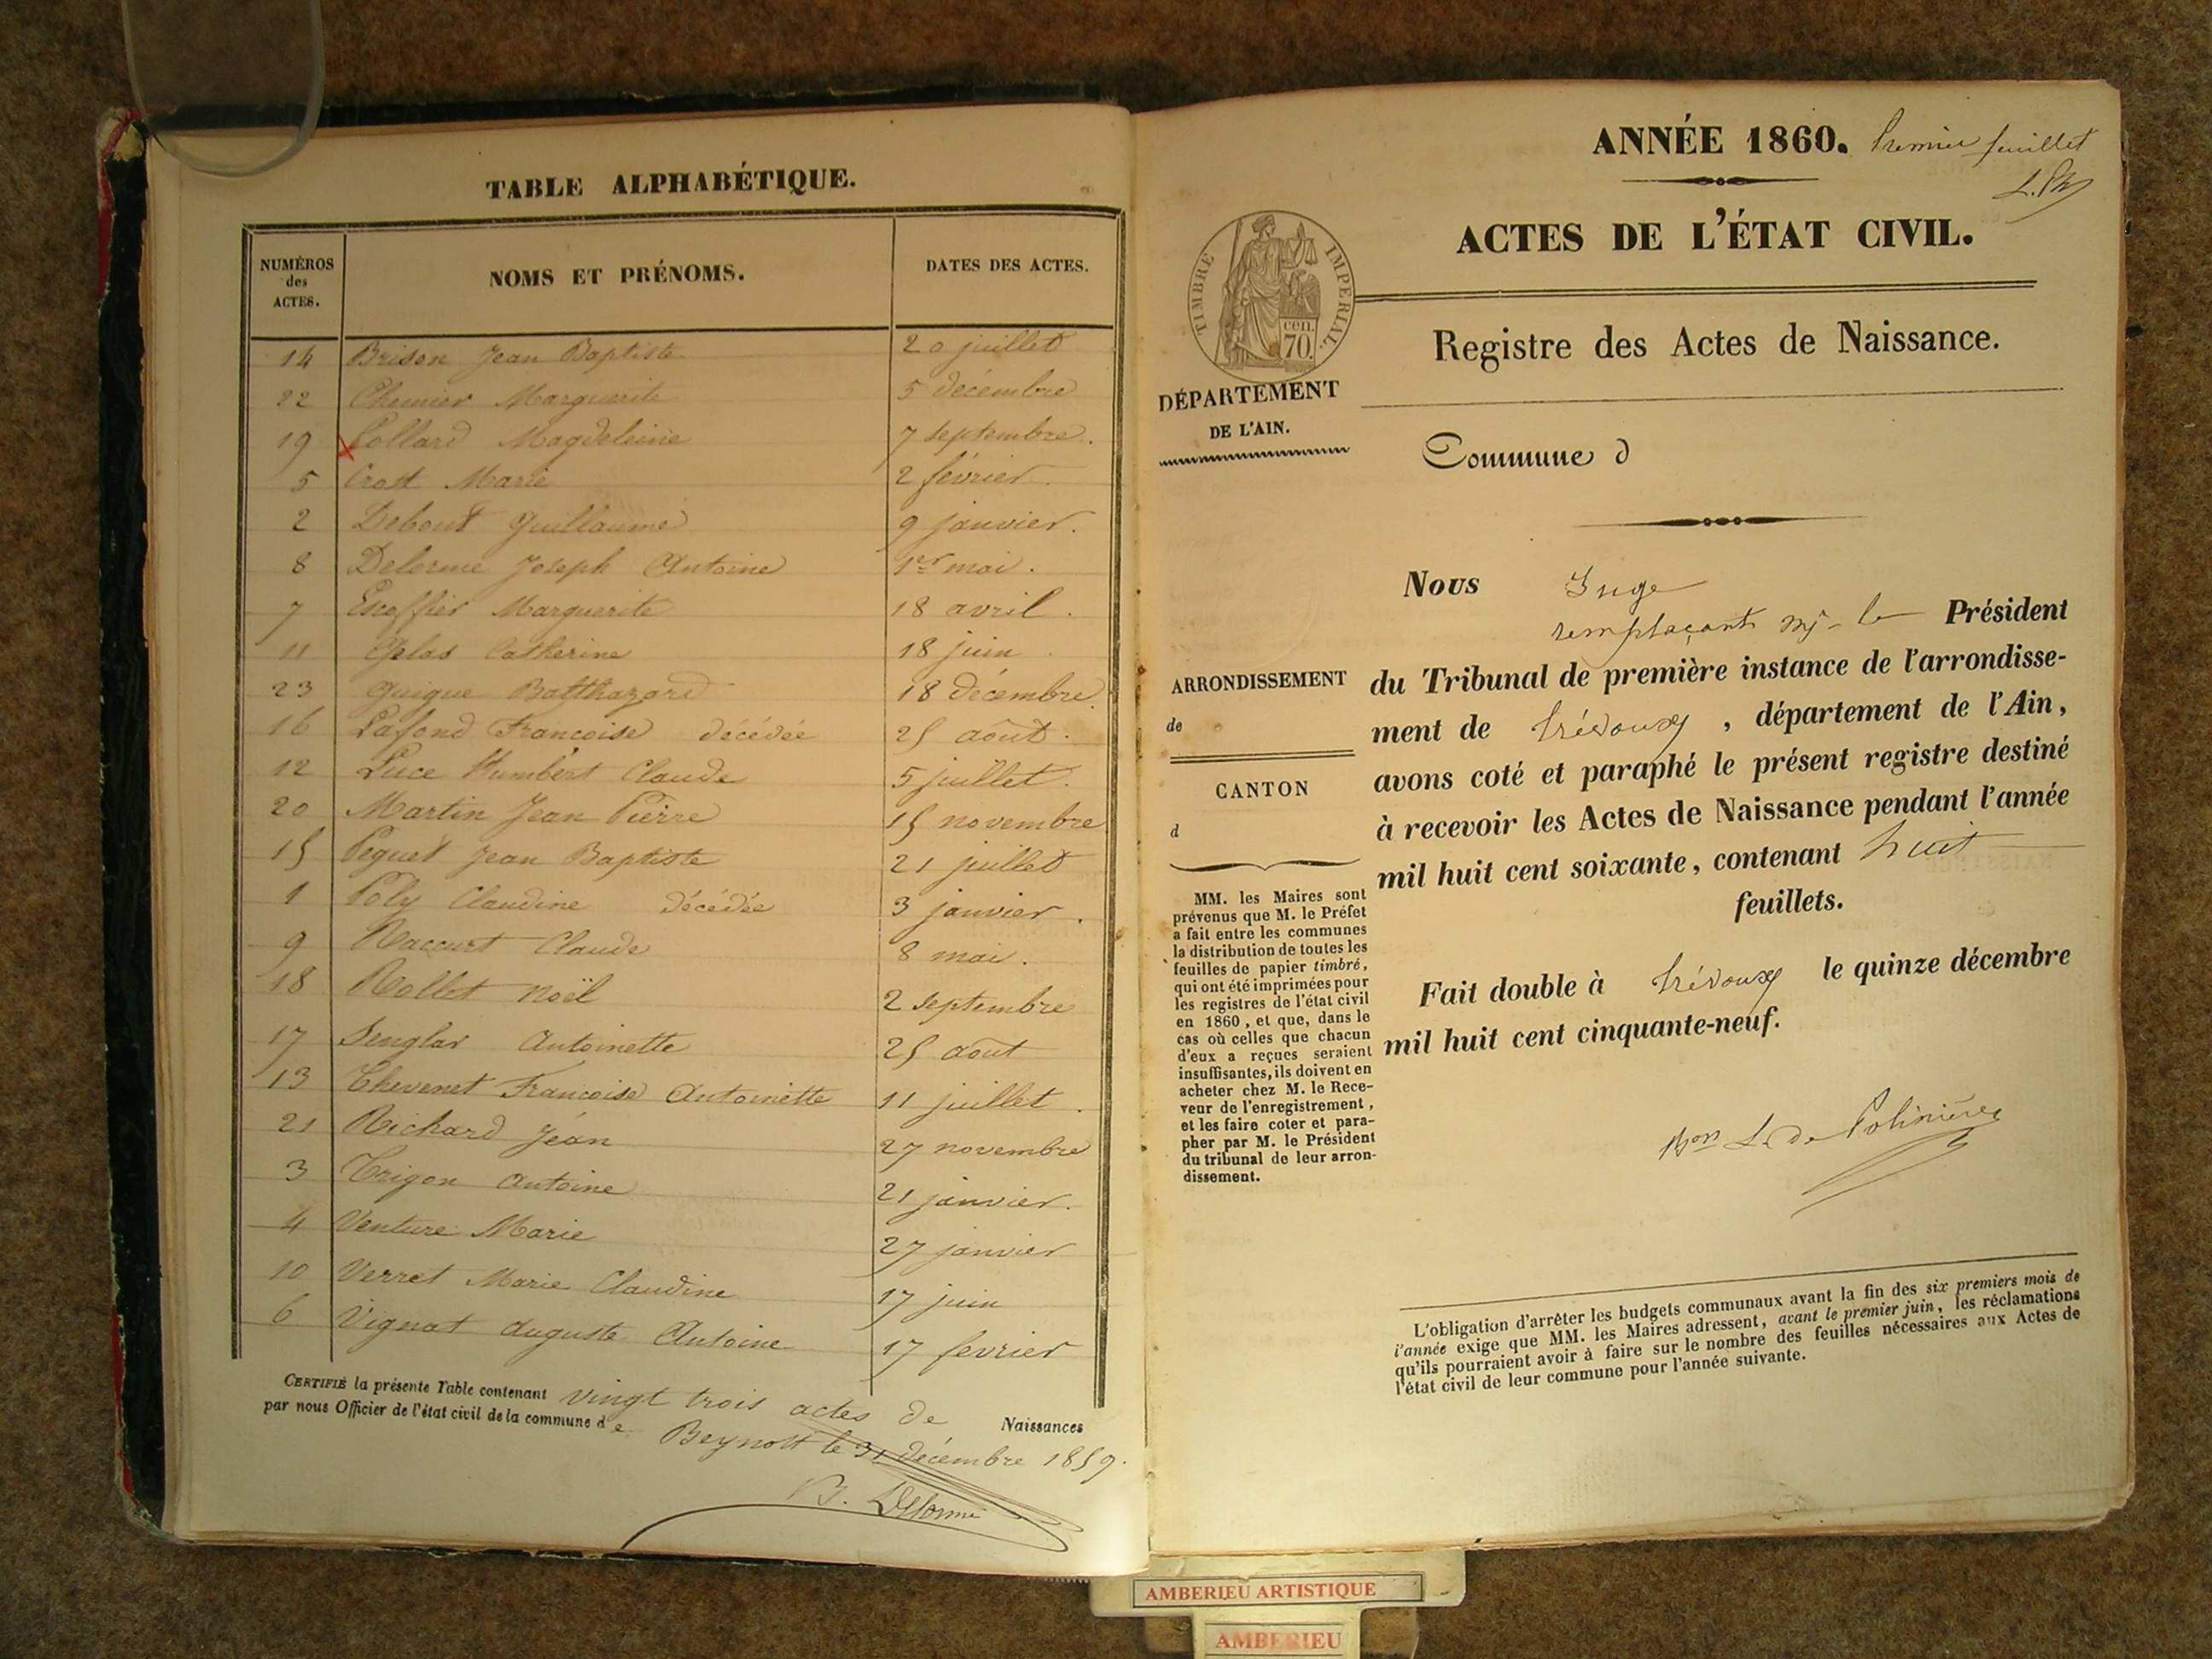 TABLE ALPHABÉTIQUE.
NUMÉROS des ACTES.
NOMS ET PRÉNOMS.
DATES DES ACTES.
14 Brison Jean Baptiste 20 juillet
22 Chemier Marguerite 5 décembre
19 Collard Magdeleine 7 septembre.
5 Crost Marie 2 février.
2 Debout Guillaume 9 janvier.
8 Delorme Joseph Antoine 1er mai.
7 Escoffier Marguerite 18 avril.
11 Gelas Catherine 18 juin.
23 Guigue Balthazard 18 décembre.
16 Lafond Françoise décédée 25 août.
12 Luce Humbert Claude 5 juillet.
20 Martin Jean Pierre 15 novembre
15 Peguet Jean Baptiste 21 juillet
1 Poly Claudine décédée 3 janvier.
9 Raccurt Claude 8 mai.
18 Rollet Noël 2 septembre
17 Senglar Antoinette 25 août
13 Thevenet Françoise Antoinette 11 juillet.
21 Richard Jean 27 novembre
3 Trigon Antoine 21 janvier.
4 Venture Marie 27 janvier
10 Verret Marie Claudine 17 juin
6 Vignat Auguste Antoine 17 fevrier
CERTIFIÉ la présente Table contenant vingt trois actes de Naissances
par nous Officier de l'état civil de la commune de Beynost le 31 décembre 1859.
B. Delorme
ANNÉE 1860. Premier feuillet
ACTES DE L'ÉTAT CIVIL.
TIMBRE IMPÉRIAL.
cen.
70.
Registre des Actes de Naissance.
DÉPARTEMENT
DE L'AIN.
Commune d
Nous Juge
remplaçant Mr le Président
ARRONDISSEMENT
de
du Tribunal de première instance de l'arrondisse-
ment de Trévoux, département de l'Ain,
avons coté et paraphé le présent registre destiné
CANTON
d
à recevoir les Actes de Naissance pendant l'année
mil huit cent soixante, contenant huit
feuillets.
MM. les Maires sont
prévenus que M. le Préfet
a fait entre les communes
la distribution de toutes les
feuilles de papier timbré,
qui ont été imprimées pour
les registres de l'état civil
en 1860, et que, dans le
cas où celles que chacun
d'eux a reçues seraient
insuffisantes, ils doivent en
acheter chez M. le Rece-
veur de l'enregistrement,
et les faire coter et para-
pher par M. le Président
du tribunal de leur arron-
dissement.
Fait double à Trévoux le quinze décembre
mil huit cent cinquante-neuf.
Bon L. de Polinière
L'obligation d'arrêter les budgets communaux avant la fin des six premiers mois de
l'année exige que MM. les Maires adressent, avant le premier juin, les réclamations
qu'ils pourraient avoir à faire sur le nombre des feuilles nécessaires aux Actes de
l'état civil de leur commune pour l'année suivante.
AMBERIEU ARTISTIQUE
AMBERIEU